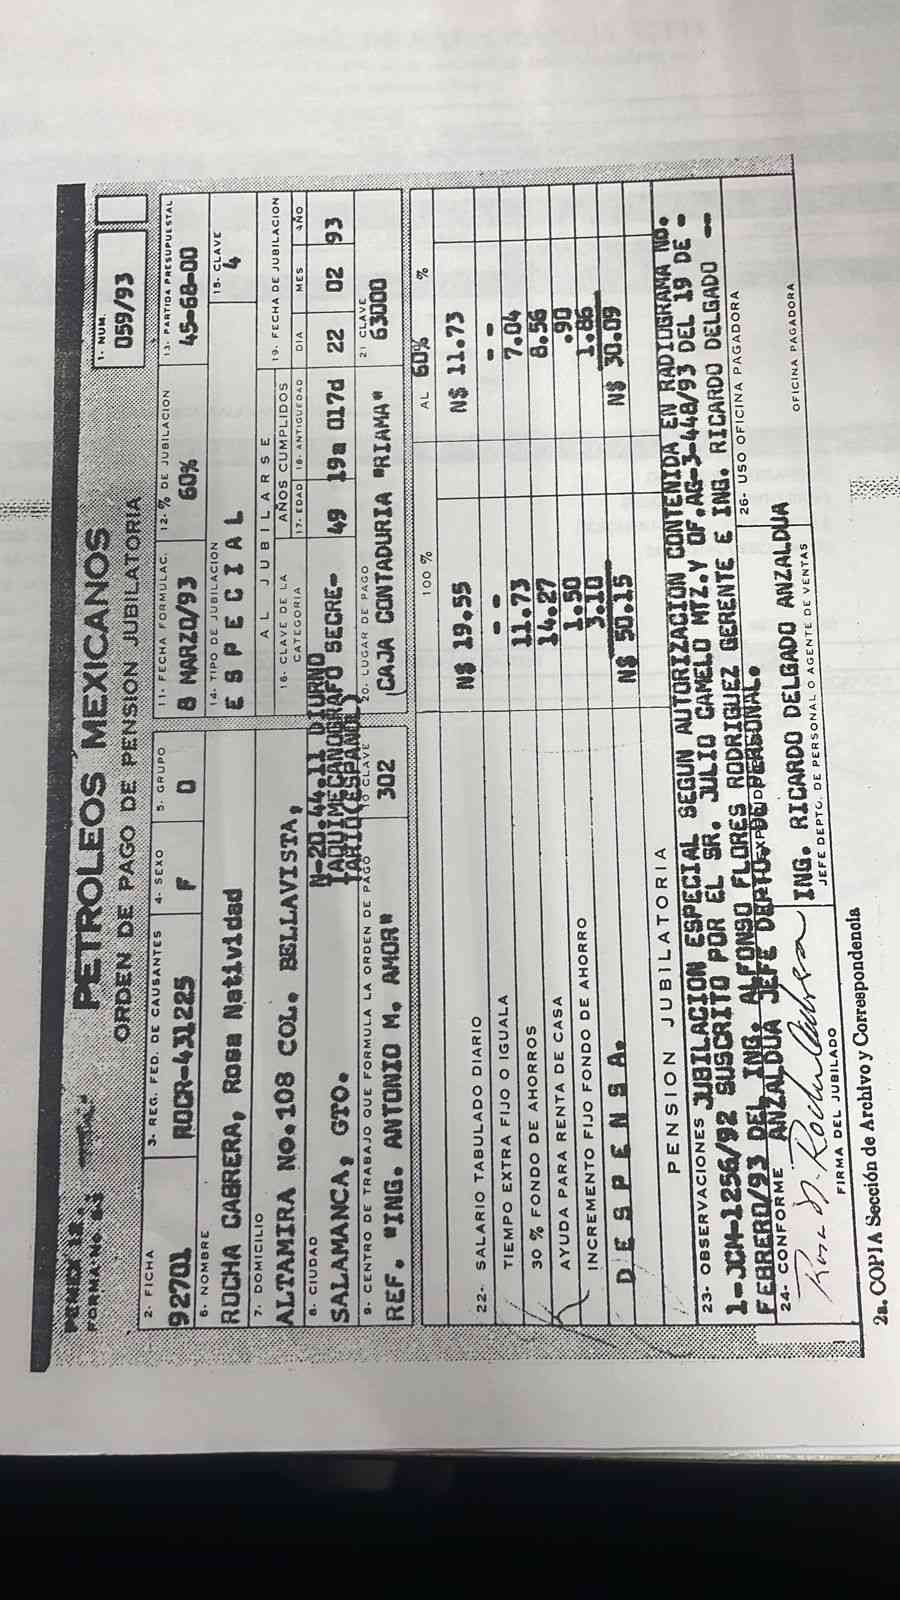 PEMEX 12.
FORMA No. 6.3
PETROLEOS MEXICANOS
ORDEN DE PAGO DE PENSION JUBILATORIA
1- NUM.
059/93
2- FICHA
92701
3- REG. FED. DE CAUSANTES
ROCR-431225
4- SEXO
F
5. GRUPO
O
11- FECHA FORMULAC.
8 MARZO/93
12- % DE JUBILACION
60%
13- PARTIDA PRESUPUESTAL
45-68-00
6- NOMBRE
ROCHA CABRERA, Rosa Natividad
14- TIPO DE JUBILACION
E S P E C I A L
15- CLAVE
4
7. DOMICILIO
ALTAMIRA No.108 COL. BELLAVISTA,
AL JUBILARSE
16- CLAVE DE LA CATEGORIA
N-20.44.11 DIURNO
TAQUIMECANOGRAFO SECRE-
TARIO(ESPAÑOL)
AÑOS CUMPLIDOS
17. EDAD
49
18- ANTIGUEDAD
19a 017d
19- FECHA DE JUBILACION
DIA MES AÑO
22 02 93
8- CIUDAD
SALAMANCA, GTO.
9- CENTRO DE TRABAJO QUE FORMULA LA ORDEN DE PAGO
REF. "ING. ANTONIO M. AMOR"
10 CLAVE
302
20- LUGAR DE PAGO
CAJA CONTADURIA "RIAMA"
21 CLAVE
63000
100 % AL 60% %
22- SALARIO TABULADO DIARIO N$ 19.55 N$ 11.73
TIEMPO EXTRA FIJO O IGUALA - - - -
30 % FONDO DE AHORROS 11.73 7.04
AYUDA PARA RENTA DE CASA 14.27 8.56
INCREMENTO FIJO FONDO DE AHORRO 1.50 .90
D E S P E N S A. 3.10 1.86
PENSION JUBILATORIA N$ 50.15 N$ 30.09
23- OBSERVACIONES JUBILACION ESPECIAL SEGUN AUTORIZACION CONTENIDA EN RADIOGRAMA No.
1-JCM-1256/92 SUSCRITO POR EL SR. JULIO CAMELO MTZ.Y OF.AG-3-448/93 DEL 19 DE -
FEBRERO/93 DEL ING. ALFONSO FLORES RODRIGUEZ GERENTE E ING. RICARDO DELGADO --
ANZALDUA JEFE DEPTO. DE PERSONAL.
24- CONFORME
Rosa N. Rocha Cabrera
FIRMA DEL JUBILADO
ING. RICARDO DELGADO ANZALDUA
JEFE DEPTO. DE PERSONAL O AGENTE DE VENTAS
26- USO OFICINA PAGADORA
OFICINA PAGADORA
2a. COPIA Sección de Archivo y Correspondencia